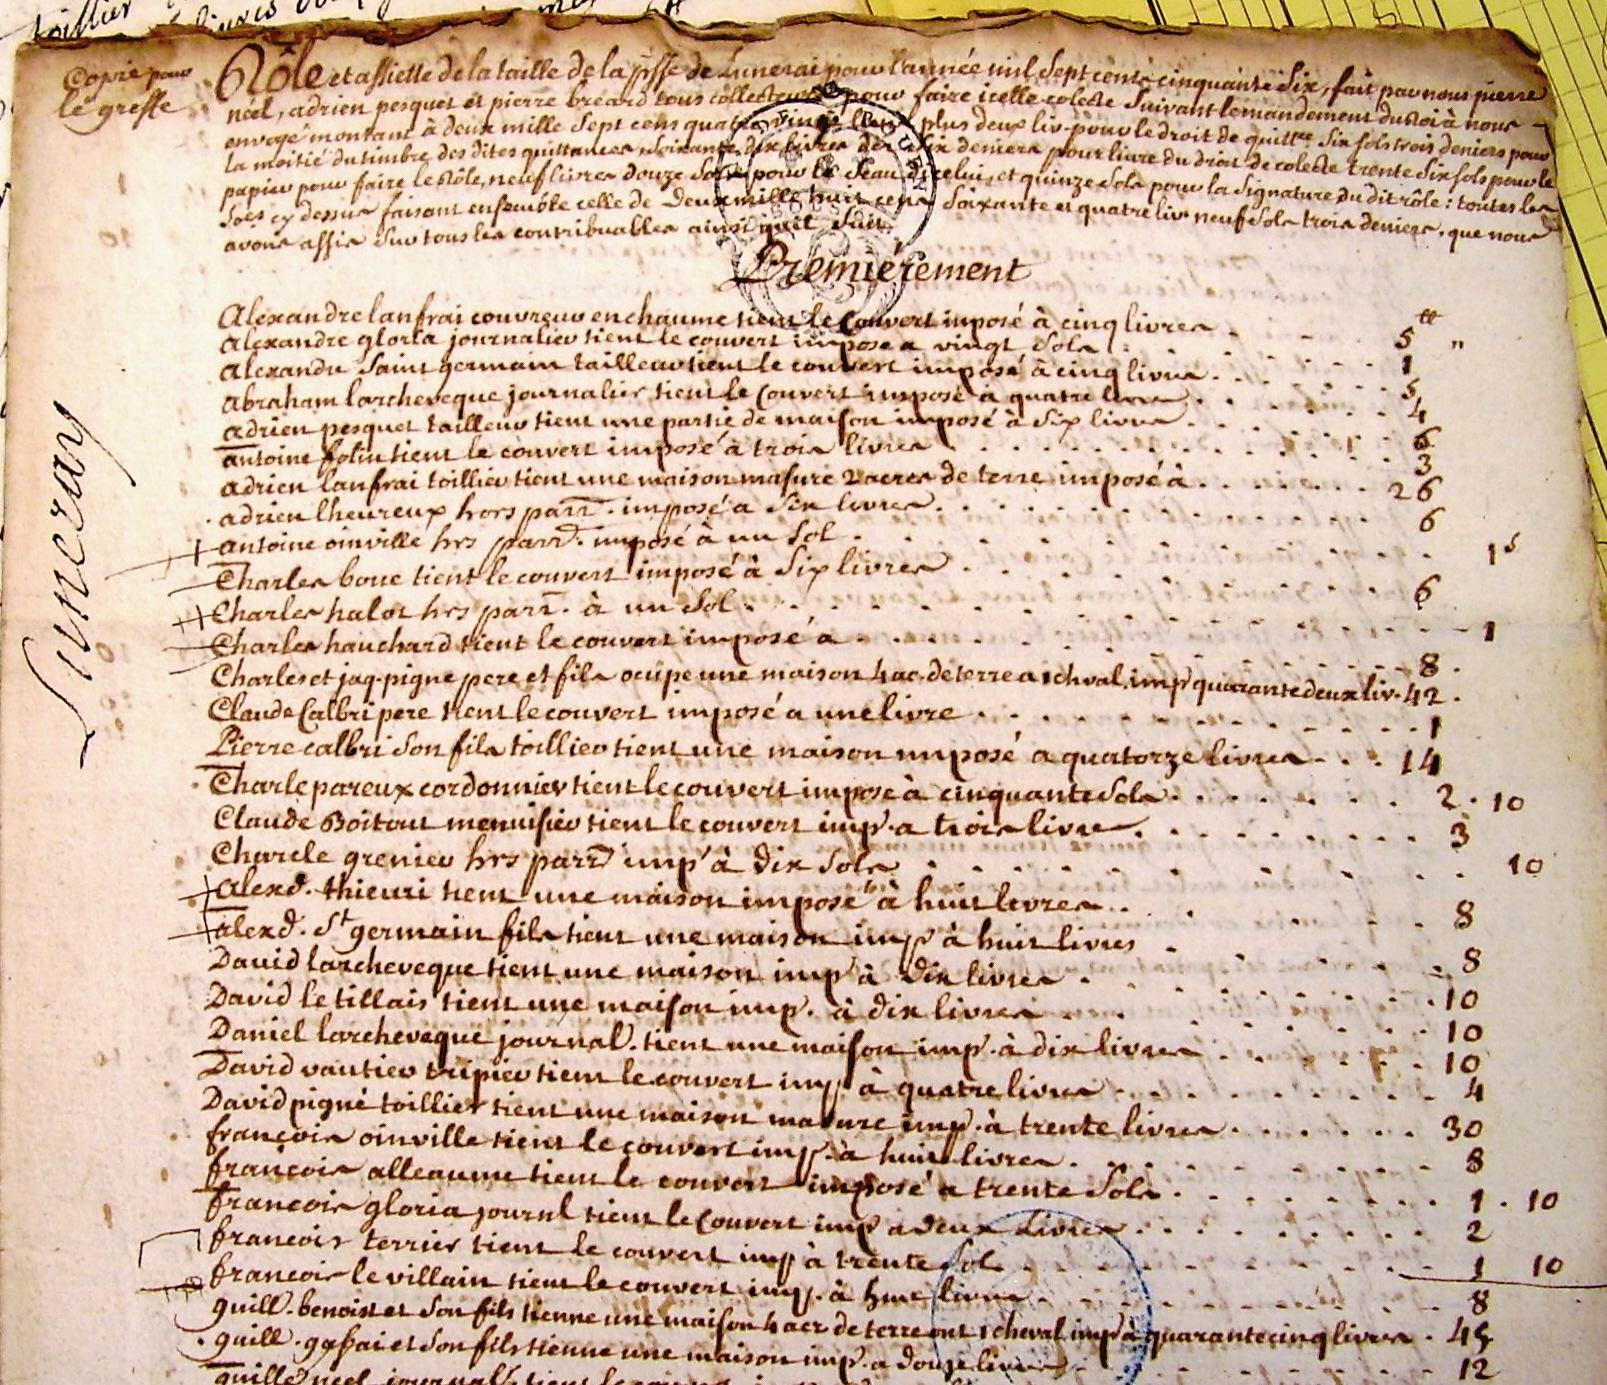 Copie pour
le greffe
Rôle et assiette de la taille de la psse de Lunerai pour l'année mil sept cents cinquante six, fait par nous pierre
neel, adrien pesquet et pierre breard tous collecteurs pour faire icelle colecte suivant le mandement du Roi à nous
envoyé montant à deux mille sept cens quatre vingt plus deux liv. pour le droit de quittce six sols trois deniers pour
la moitié du timbre des dites quittances soixante dix livres six deniers pour livre du droit de colecte trente six sols pour le
papier pour faire le Rôle, neuf livres douze sols pour le Seau d'icelui, et quinze sols pour la signature du dit rôle : toutes les
soes cy dessus faisant ensemble celle de Deux mille huit cens soixante et quatre liv neuf sols trois deniers, que nous
avons assis sur tous les contribuables ainsi quil suit
Premiérement
Alexandre lanfrai couvreur en chaume tient le couvert imposé à cinq livres 5 tt "
Alexandre gloria journalier tient le couvert imposé a vingt sols 1
Alexandre Saint germain tailleur tient le couvert imposé à cinq livres 5
Abraham larcheveque journalier tient le couvert imposé a quatre livres 4
Adrien pesquet tailleur tient une partie de maison imposé à six livres 6
antoine folin tient le couvert imposé à trois livres 3
adrien lanfrai toillier tient une maison masure 2 acres de terre imposé à 26
adrien lheureux hors parr. imposé a six livres 6
antoine oinville hrs parr. imposé à un sol 1 s
Charles boue tient le couvert imposé à six livres 6
Charles halot hrs parr. à un sol 1
Charles hauchard tient le couvert imposé à 8
Charles et jaq. pigne pere et fils ocupe une maison 4 ac. de terre a 1 chval imp quarante deux liv. 42
Claude Calbri pere tient le couvert imposé a une livre 1
Pierre calbri son fils toillier tient une maison imposé a quatorze livres 14
Charle pareux cordonnier tient le couvert imposé à cinquante sols 2 . 10
Claude Boitout menuisier tient le couvert imp. a trois livres 3
Charcle grenier hrs parr imp à dix sols 10
alexd. thieuri tient une maison imposé à huit livres 8
alexd. St germain fils tient une maison imp à huit livres 8
David larcheveque tient une maison imp à dix livres 10
David le tillais tient une maison imp. à dix livres 10
Daniel larcheveque journal. tient une maison imp. à dix livres 10
David vautier tripier tient le couvert imp à quatre livres 4
David pigné toillier tient une maison masure imp. à trente livres 30
françois oinville tient le couvert imp. à huit livres 8
françois alleaume tient le couvert imposé a trente sols 1 . 10
françois gloria journl tient le couvert imp a deux livres 2
francois terrier tient le couvert imp à trente sol 1 10
francois le villain tient le couvert imp. à huit livres 8
guill. benoist et son fils tienne une maison 4 acr de terre ont 1 cheval imp à quarante cinq livres 45
guill. et son fils tienne une maison imp. a douze livres 12
guille neel journal tient le
Luneray